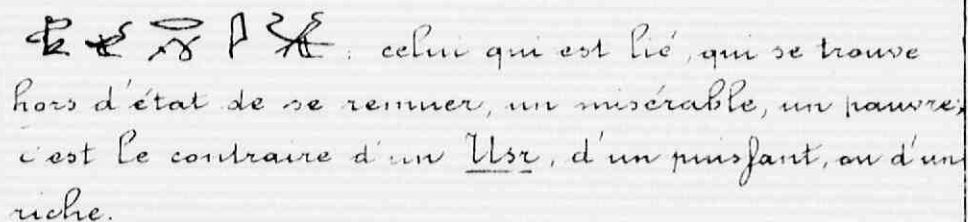 : celui qui est lié, qui se trouve
hors d'état de se remuer, un misérable, un pauvre;
c'est le contraire d'un Usr, d'un puissant, ou d'un
riche.